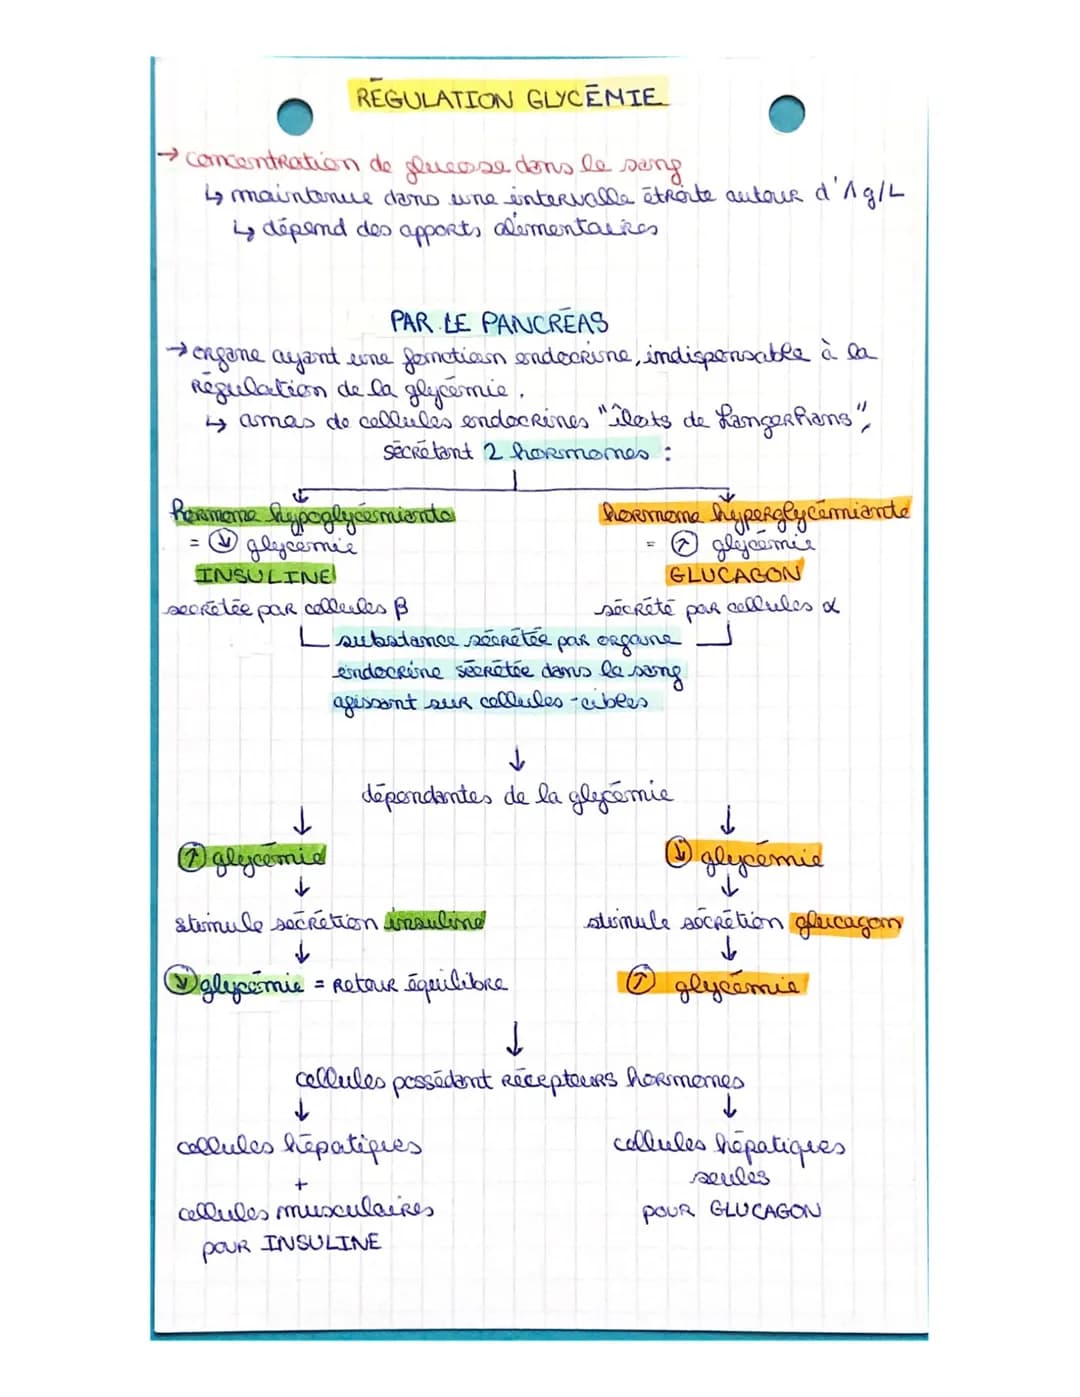 RÉGULATION GLYCÉMIE
→ concentration de glucose dans le sang
↳ maintenue dans une intervalle étroite autour d'1g/L
↳ dépend des apports alimentaires
PAR LE PANCRÉAS
→ organe ayant une fonction endocrine, indispensable à la
régulation de la glycémie.
↳ amas de cellules endocrines "îlots de Langerhans",
sécrétant 2 hormones :
hormone hypoglycémiante
= ↓ glycémie
INSULINE
secrétée par cellules β
hormone hyperglycémiante
= ↑ glycémie
GLUCAGON
sécrété par cellules α
substance sécrétée par organe
endocrine sécrétée dans le sang
agissant sur cellules-cibles
↓
dépendantes de la glycémie
↓
↑ glycémie
↓
stimule sécrétion insuline
↓
↓ glycémie = retour équilibre
↓
↓ glycémie
↓
stimule sécrétion glucagon
↓
↑ glycémie
↓
cellules possédant récepteurs hormones
↓
cellules hépatiques
+
cellules musculaires
pour INSULINE
↓
cellules hépatiques
seules
pour GLUCAGON